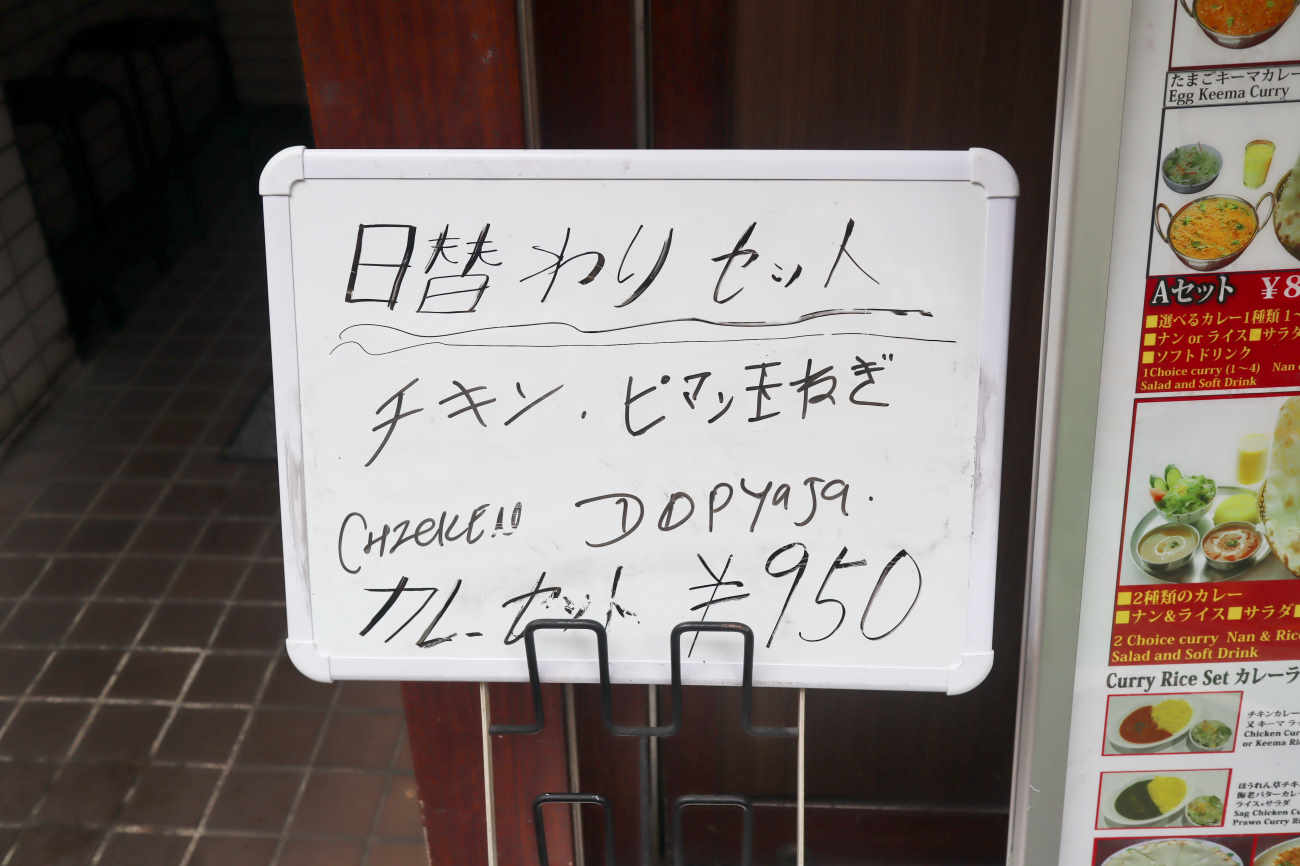 日替わりセット
チキン・ピマン玉ねぎ
CHZeKE!! DOPYaJa.
カレーセット ¥950
たまごキーマカレー
Egg Keema Curry
Aセット ¥8
■選べるカレー1種類 1~
■ナン or ライス■サラダ
■ソフトドリンク
1Choice curry (1~4) Nan
Salad and Soft Drink
■2種類のカレー
■ナン&ライス■サラダ■
2 Choice curry Nan & Rice
Salad and Soft Drink
Curry Rice Set カレーラ
チキンカレー
又キーマ
Chicken Cur
or Keema Ri
ほうれん草チキ
海老バターカレ
ライス+サラダ
Sag Chicken Cu
Prawo Curry Ri